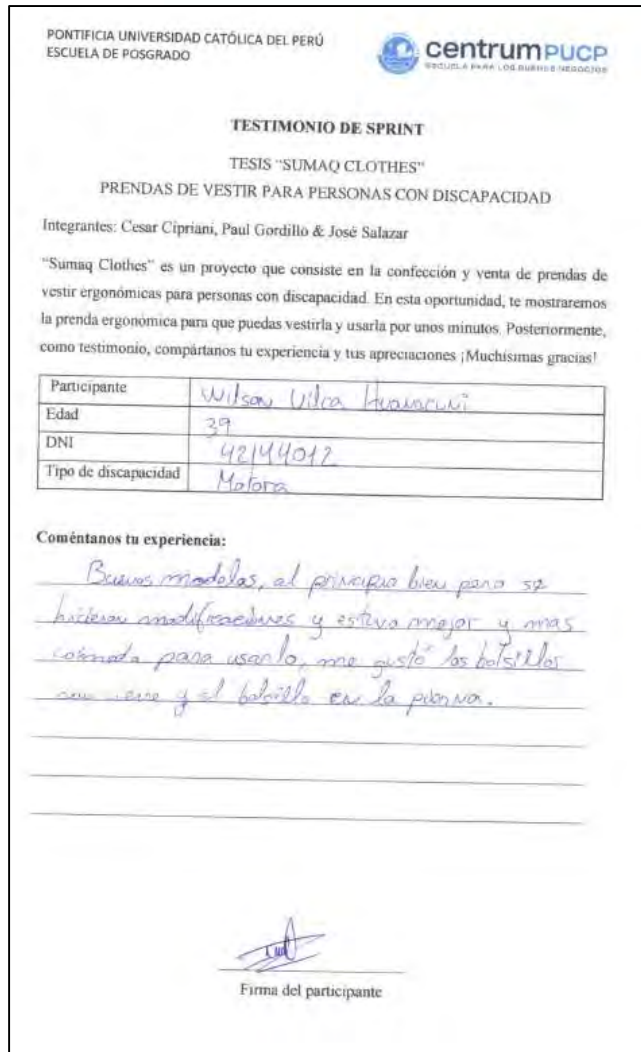 PONTIFICIA UNIVERSIDAD CATÓLICA DEL PERÚ
ESCUELA DE POSGRADO
centrumPUCP
ESCUELA PARA LOS BUENOS NEGOCIOS
TESTIMONIO DE SPRINT
TESIS "SUMAQ CLOTHES"
PRENDAS DE VESTIR PARA PERSONAS CON DISCAPACIDAD
Integrantes: Cesar Cipriani, Paul Gordillo & José Salazar
"Sumaq Clothes" es un proyecto que consiste en la confección y venta de prendas de
vestir ergonómicas para personas con discapacidad. En esta oportunidad, te mostraremos
la prenda ergonómica para que puedas vestirla y usarla por unos minutos. Posteriormente,
como testimonio, compártanos tu experiencia y tus apreciaciones ¡Muchísimas gracias!
Participante Wilson Vilca Huanacuni
Edad 39
DNI 42144012
Tipo de discapacidad Motora
Coméntanos tu experiencia:
Buenos modelos, al principio bien pero se
hicieron modificaciones y estuvo mejor y mas
comoda para usarlo, me gustó los bolsillos
y el bolsillo en la pierna.
Firma del participante